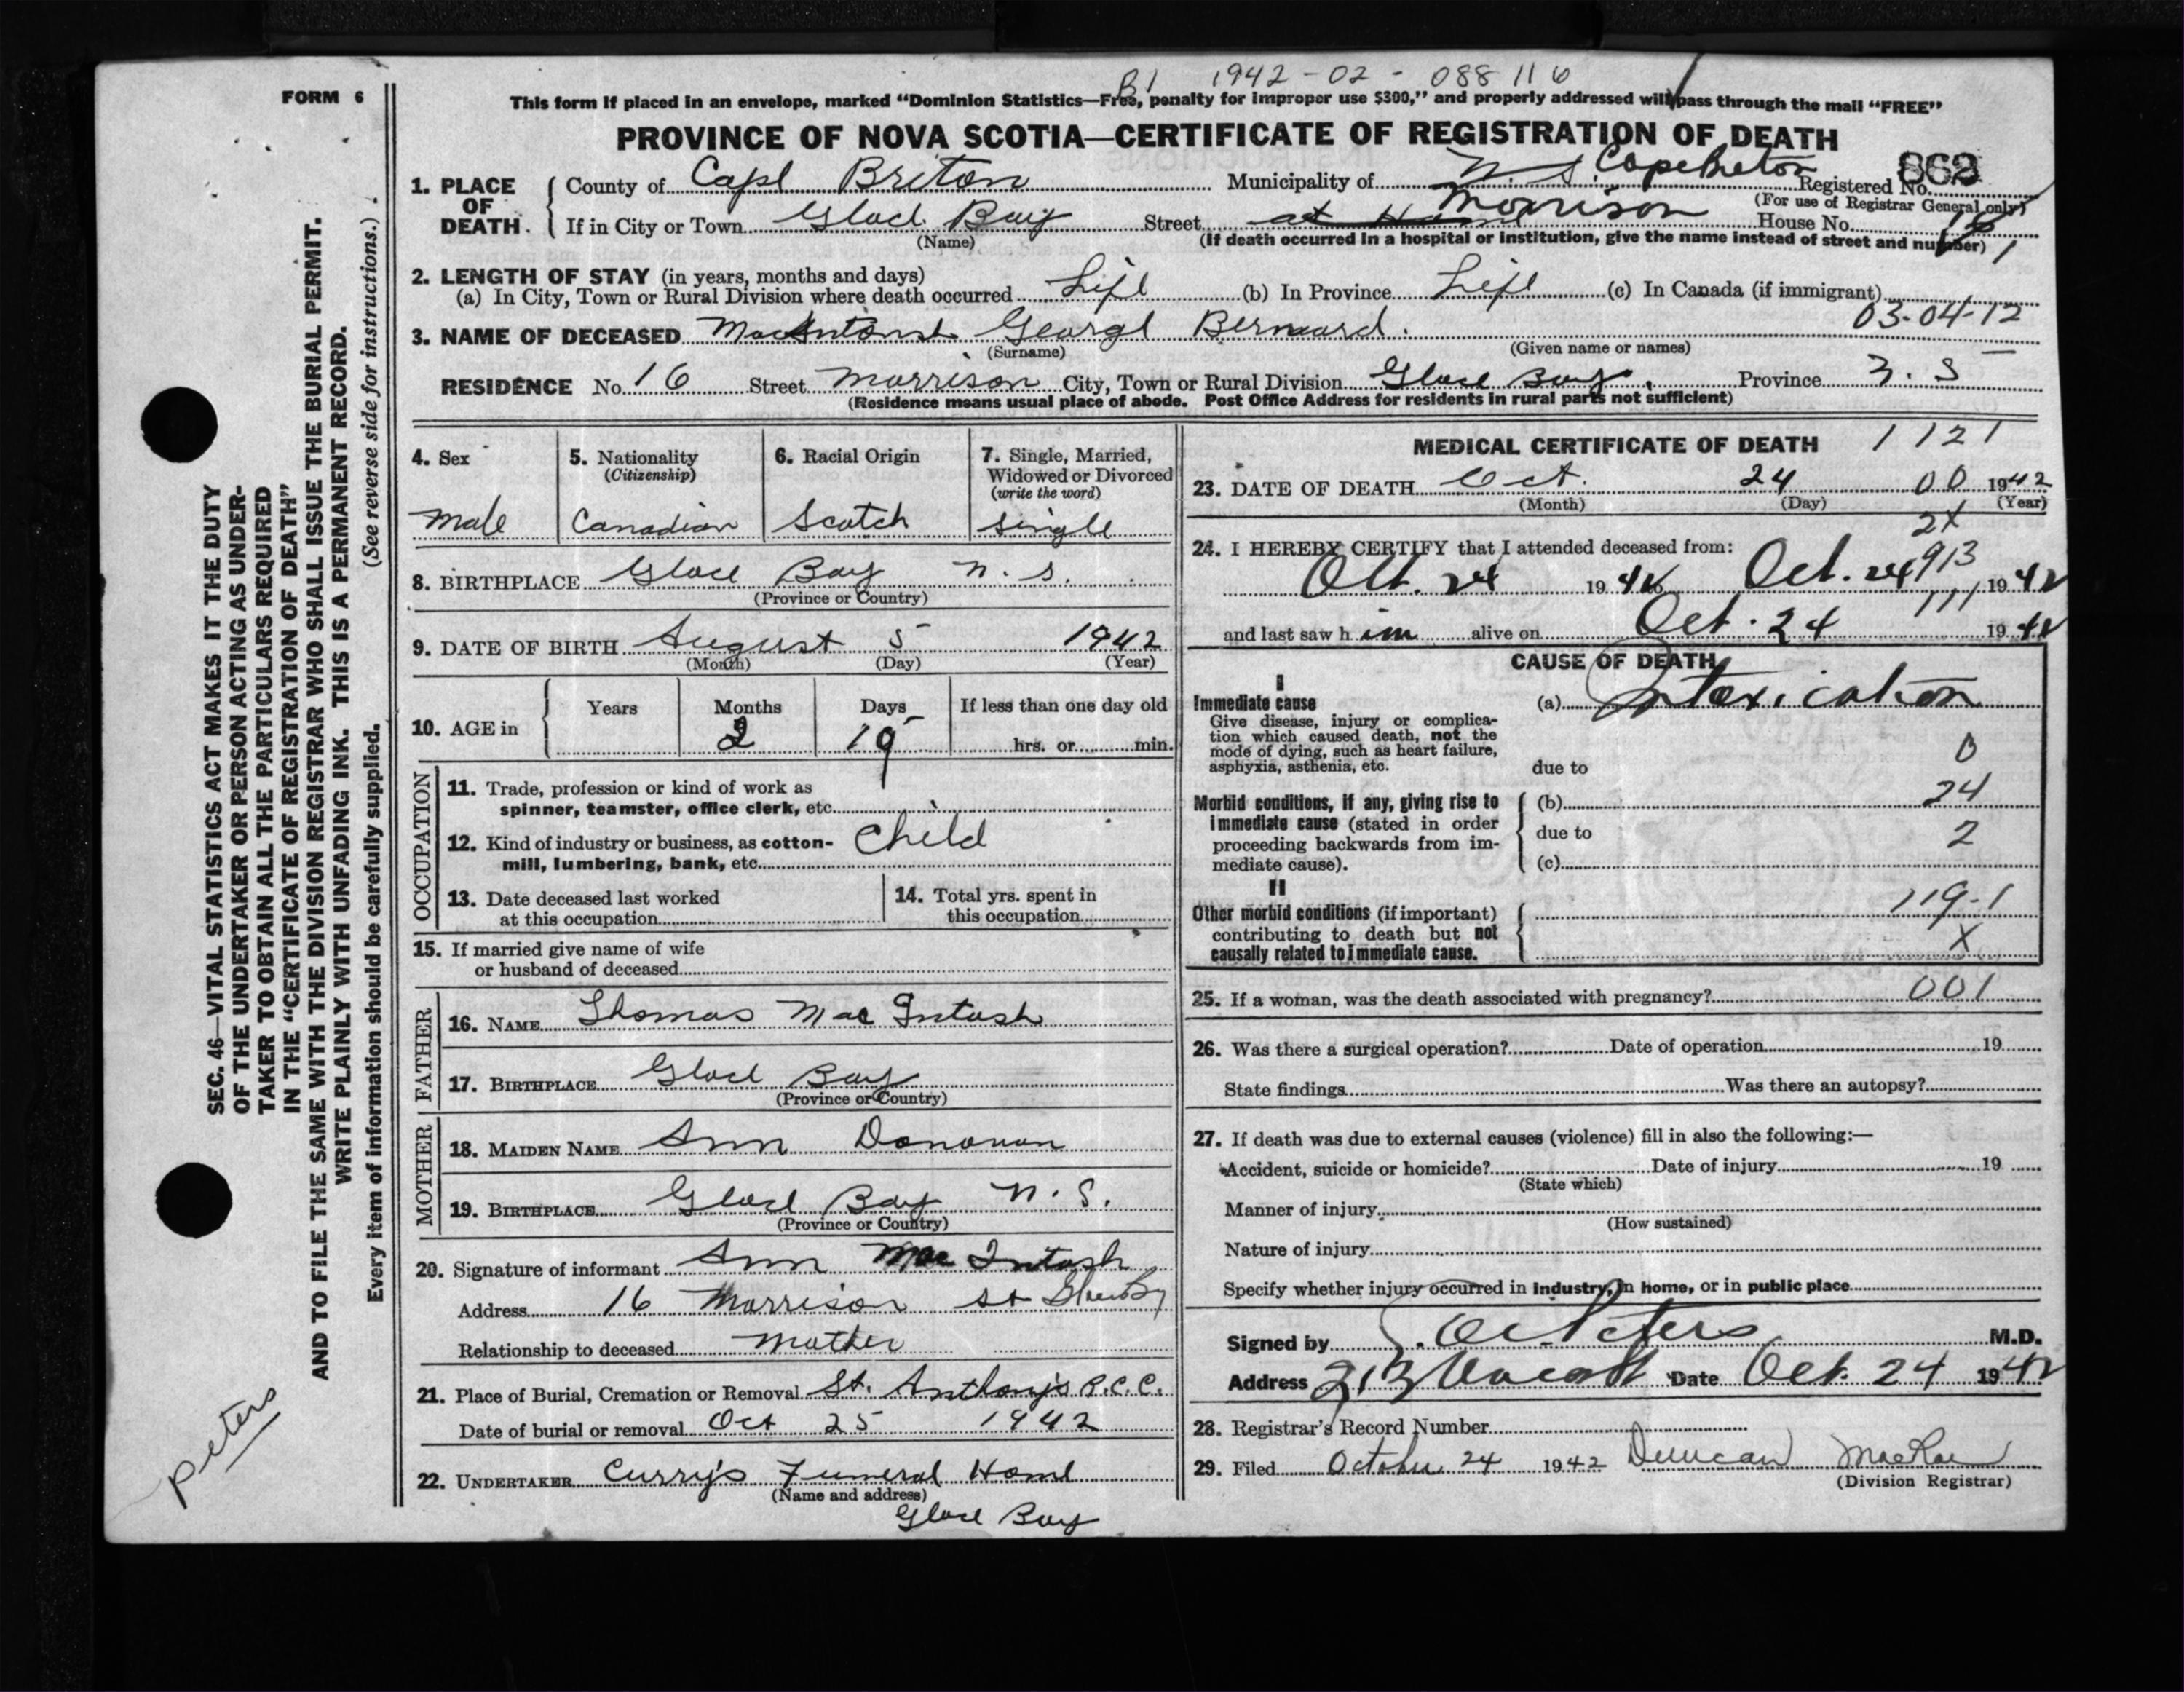 B1 1942-02-088116
FORM 6
This form if placed in an envelope, marked "Dominion Statistics—Free, penalty for improper use $300," and properly addressed will pass through the mail "FREE"
PROVINCE OF NOVA SCOTIA—CERTIFICATE OF REGISTRATION OF DEATH
862
1. PLACE OF DEATH. County of Cape Briton Municipality of N. S. Cape Breton Registered No.
(For use of Registrar General only)
If in City or Town Glace Bay Street at Home Morrison House No. 16
(Name) (If death occurred in a hospital or institution, give the name instead of street and number)
2. LENGTH OF STAY (in years, months and days)
(a) In City, Town or Rural Division where death occurred Life (b) In Province Life (c) In Canada (if immigrant)
03-04-12
3. NAME OF DECEASED MacIntosh George Bernard.
(Surname) (Given name or names)
RESIDENCE No. 16 Street Morrison City, Town or Rural Division Glace Bay, Province N. S
(Residence means usual place of abode. Post Office Address for residents in rural parts not sufficient)
4. Sex
male
5. Nationality
(Citizenship)
Canadian
6. Racial Origin
Scotch
7. Single, Married,
Widowed or Divorced
(write the word)
single
8. BIRTHPLACE Glace Bay N. S.
(Province or Country)
9. DATE OF BIRTH August 5 1942
(Month) (Day) (Year)
10. AGE in
Years Months Days If less than one day old
2 19 hrs. or min.
OCCUPATION
11. Trade, profession or kind of work as
spinner, teamster, office clerk, etc.
12. Kind of industry or business, as cotton-
mill, lumbering, bank, etc. Child
13. Date deceased last worked
at this occupation
14. Total yrs. spent in
this occupation
15. If married give name of wife
or husband of deceased
FATHER
16. NAME Thomas Mac Intosh
17. BIRTHPLACE Glace Bay
(Province or Country)
MOTHER
18. MAIDEN NAME Ann Donovan
19. BIRTHPLACE Glace Bay N. S.
(Province or Country)
20. Signature of informant Ann Mac Intosh
Address 16 Morrison St Glace By
Relationship to deceased Mother
21. Place of Burial, Cremation or Removal St. Anthony's R.C.C.
Date of burial or removal Oct 25 1942
22. UNDERTAKER Curry's Funeral Home
(Name and address)
Glace Bay
MEDICAL CERTIFICATE OF DEATH 1121
23. DATE OF DEATH Oct. 24 00 1942
(Month) (Day) (Year)
2X
24. I HEREBY CERTIFY that I attended deceased from:
913
Oct. 24 1942 Oct. 24 1942
111
and last saw him alive on Oct. 24 1942
CAUSE OF DEATH
I
Immediate cause
Give disease, injury or complica-
tion which caused death, not the
mode of dying, such as heart failure,
asphyxia, asthenia, etc.
(a) Intoxication
0
due to
Morbid conditions, if any, giving rise to
immediate cause (stated in order
proceeding backwards from im-
mediate cause).
(b) 24
due to 2
(c)
II
Other morbid conditions (if important)
contributing to death but not
causally related to immediate cause.
119-1
X
25. If a woman, was the death associated with pregnancy? 001
26. Was there a surgical operation? Date of operation 19
State findings Was there an autopsy?
27. If death was due to external causes (violence) fill in also the following:—
Accident, suicide or homicide? Date of injury 19
(State which)
Manner of injury
(How sustained)
Nature of injury
Specify whether injury occurred in industry, in home, or in public place
Signed by Peters M.D.
Address Date Oct. 24 1942
28. Registrar's Record Number
29. Filed October 24 1942 Duncan MacRae
(Division Registrar)
SEC. 46—VITAL STATISTICS ACT MAKES IT THE DUTY
OF THE UNDERTAKER OR PERSON ACTING AS UNDER-
TAKER TO OBTAIN ALL THE PARTICULARS REQUIRED
IN THE "CERTIFICATE OF REGISTRATION OF DEATH"
AND TO FILE THE SAME WITH THE DIVISION REGISTRAR WHO SHALL ISSUE THE BURIAL PERMIT.
WRITE PLAINLY WITH UNFADING INK. THIS IS A PERMANENT RECORD.
Every item of information should be carefully supplied. (See reverse side for instructions.)
Peters